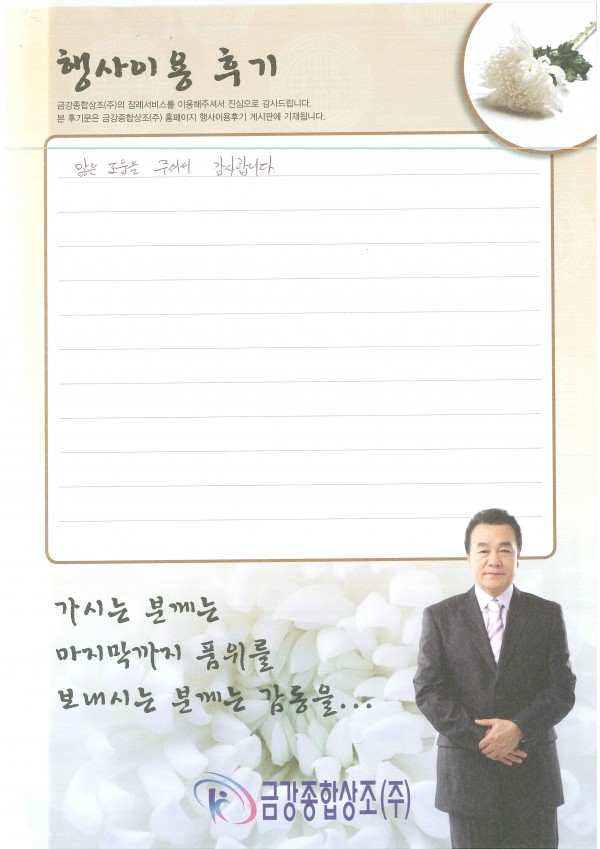 행사이용 후기
금강종합상조(주)의 장례서비스를 이용해주셔서 진심으로 감사드립니다.
본 후기문은 금강종합상조(주) 홈페이지 행사이용후기 게시판에 기재됩니다.
많은 도움을 주셔서 감사합니다.
가시는 분께는
마지막까지 품위를
보내시는 분께는 감동을...
금강종합상조(주)